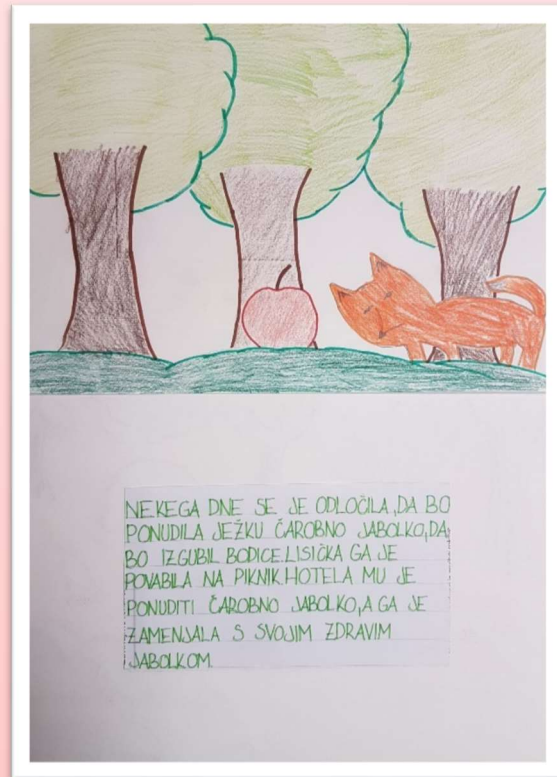 NEKEGA DNE SE JE ODLOČILA,DA BO
PONUDILA JEŽKU ČAROBNO JABOLKO,DA
BO IZGUBIL BODICE.LISIČKA GA JE
POVABILA NA PIKNIK.HOTELA MU JE
PONUDITI ČAROBNO JABOLKO,A GA JE
ZAMENJALA S SVOJIM ZDRAVIM
JABOLKOM.